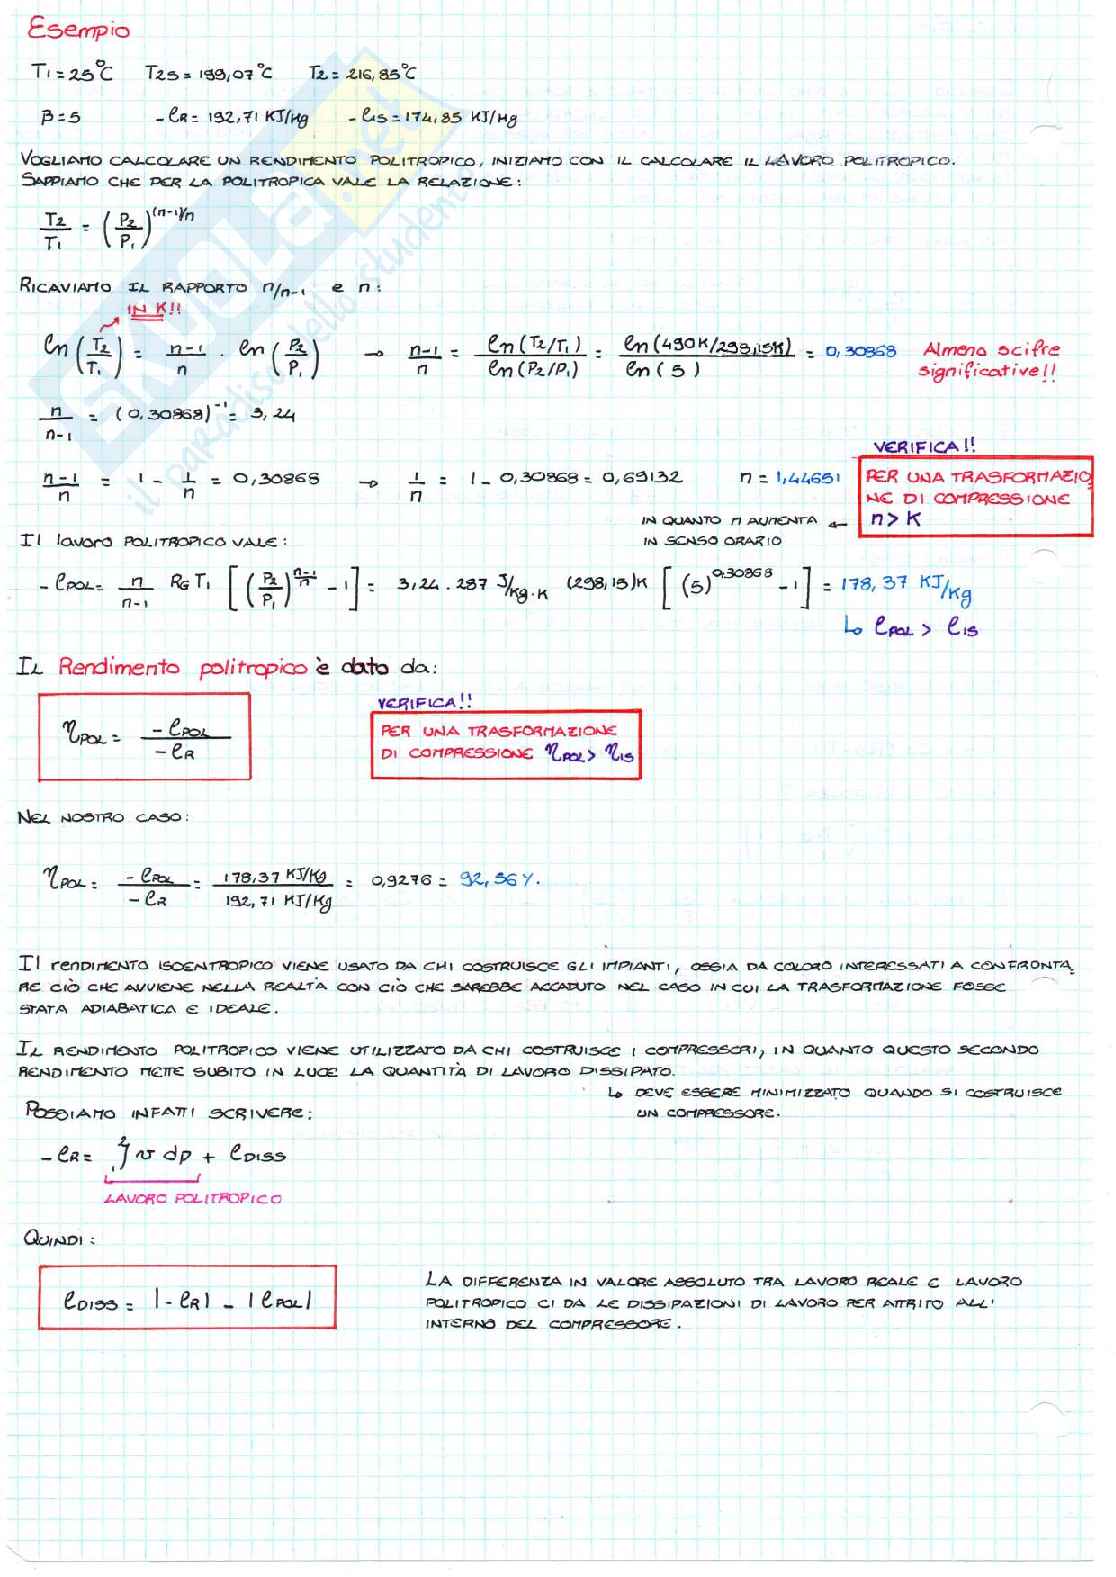 Esempio
T1 = 25°C T2S = 199,07°C T2 = 216,85°C
β = 5 - lR = 192,71 KJ/Kg - lis = 174,85 KJ/Kg
VOGLIAMO CALCOLARE UN RENDIMENTO POLITROPICO, INIZIAMO CON IL CALCOLARE IL LAVORO POLITROPICO.
SAPPIAMO CHE PER LA POLITROPICA VALE LA RELAZIONE:
T2/T1 = (P2/P1)^(n-1)/n
RICAVIAMO IL RAPPORTO n/n-1 e n:
IN K!!
ln(T2/T1) = n-1/n · ln(P2/P1) → n-1/n = ln(T2/T1)/ln(P2/P1) = ln(490K/298,15K)/ln(5) = 0,30868 Almeno 5 cifre
significative!!
n/n-1 = (0,30868)^-1 = 3,24
VERIFICA!!
n-1/n = 1 - 1/n = 0,30868 → 1/n = 1 - 0,30868 = 0,69132 n = 1,44651
PER UNA TRASFORMAZIO
NE DI COMPRESSIONE
n > K
IN QUANTO n AUMENTA ←
IN SENSO ORARIO
Il lavoro POLITROPICO VALE:
- lPOL = n/n-1 RG T1 [(P2/P1)^n-1/n - 1] = 3,24 · 287 J/kg·K (298,15)K [(5)^0,30868 - 1] = 178,37 KJ/Kg
↳ lPOL > lIS
IL Rendimento politropico è dato da:
ηPOL = - lPOL / - lR
VERIFICA!!
PER UNA TRASFORMAZIONE
DI COMPRESSIONE ηPOL > ηIS
NEL NOSTRO CASO:
ηPOL = - lPOL / - lR = 178,37 KJ/Kg / 192,71 KJ/Kg = 0,9276 = 92,56%.
Il rendIMENTO ISOENTROPICO VIENE USATO DA CHI COSTRUISCE GLI IMPIANTI, OSSIA DA COLORO INTERESSATI A CONFRONTA
RE CIÒ CHE AVVIENE NELLA REALTÀ CON CIÒ CHE SAREBBE ACCADUTO NEL CASO IN CUI LA TRASFORMAZIONE FOSSE
STATA ADIABATICA E IDEALE.
IL RENDIMENTO POLITROPICO VIENE UTILIZZATO DA CHI COSTRUISCE I COMPRESSORI, IN QUANTO QUESTO SECONDO
RENDIMENTO METTE SUBITO IN LUCE LA QUANTITÀ DI LAVORO DISSIPATO.
↳ DEVE ESSERE MINIMIZZATO QUANDO SI COSTRUISCE
UN COMPRESSORE.
POSSIAMO INFATTI SCRIVERE:
- lR = ∫₁² v dp + lDISS
LAVORO POLITROPICO
QUINDI:
lDISS = |- lR| - |lPOL|
LA DIFFERENZA IN VALORE ASSOLUTO TRA LAVORO REALE E LAVORO
POLITROPICO CI DA LE DISSIPAZIONI DI LAVORO PER ATTRITO ALL'
INTERNO DEL COMPRESSORE.
SKUOLA.net
il paradiso dello studente